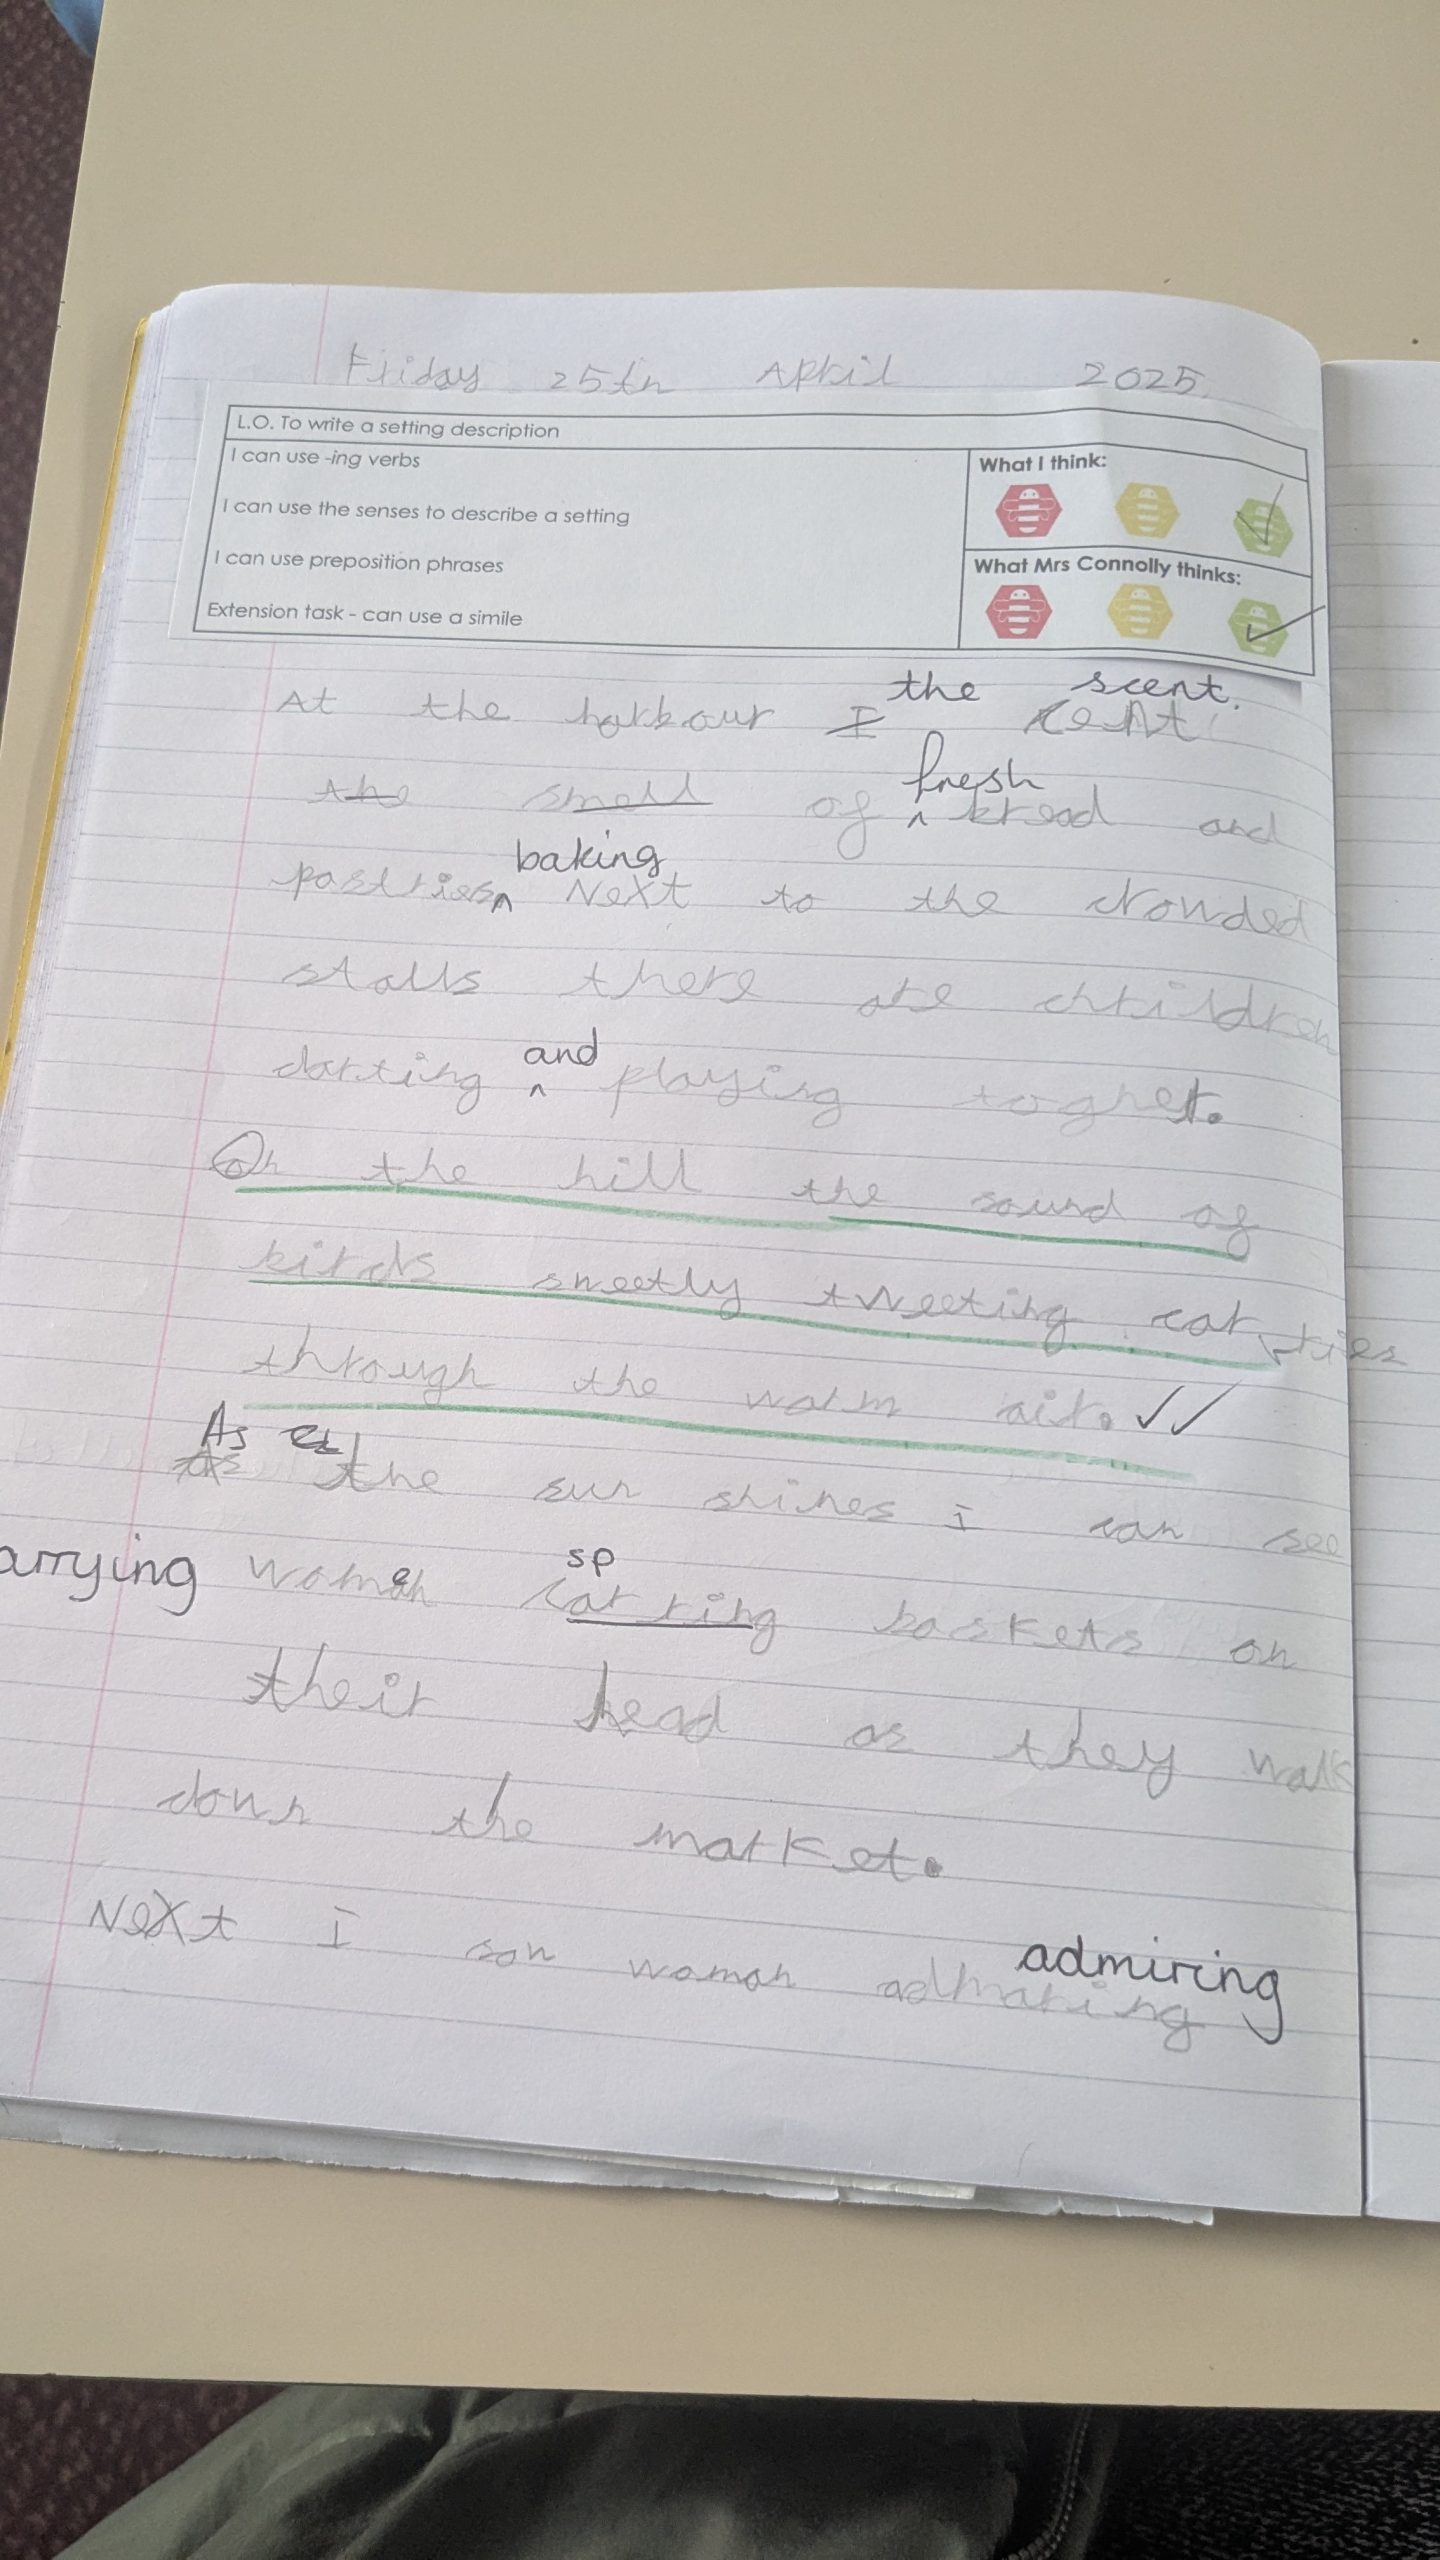 Friday 25th April 2025
L.O. To write a setting description
I can use -ing verbs
I can use the senses to describe a setting
I can use preposition phrases
Extension task - can use a simile
What I think:
What Mrs Connolly thinks:
the scent.
At the harbour I cent
fresh
the smell of ^ bread and
baking
pastries ^ Next to the crowded
stalls there are chrildren
and
darting ^ playing togher.
On the hill the sound of
birds sweetly tweeting carries
through the warm air. ✓✓
As
As the sun shines i can see
sp
arrying women carring baskets on
their head as they walk
down the market.
admiring
Next I saw woman admaring